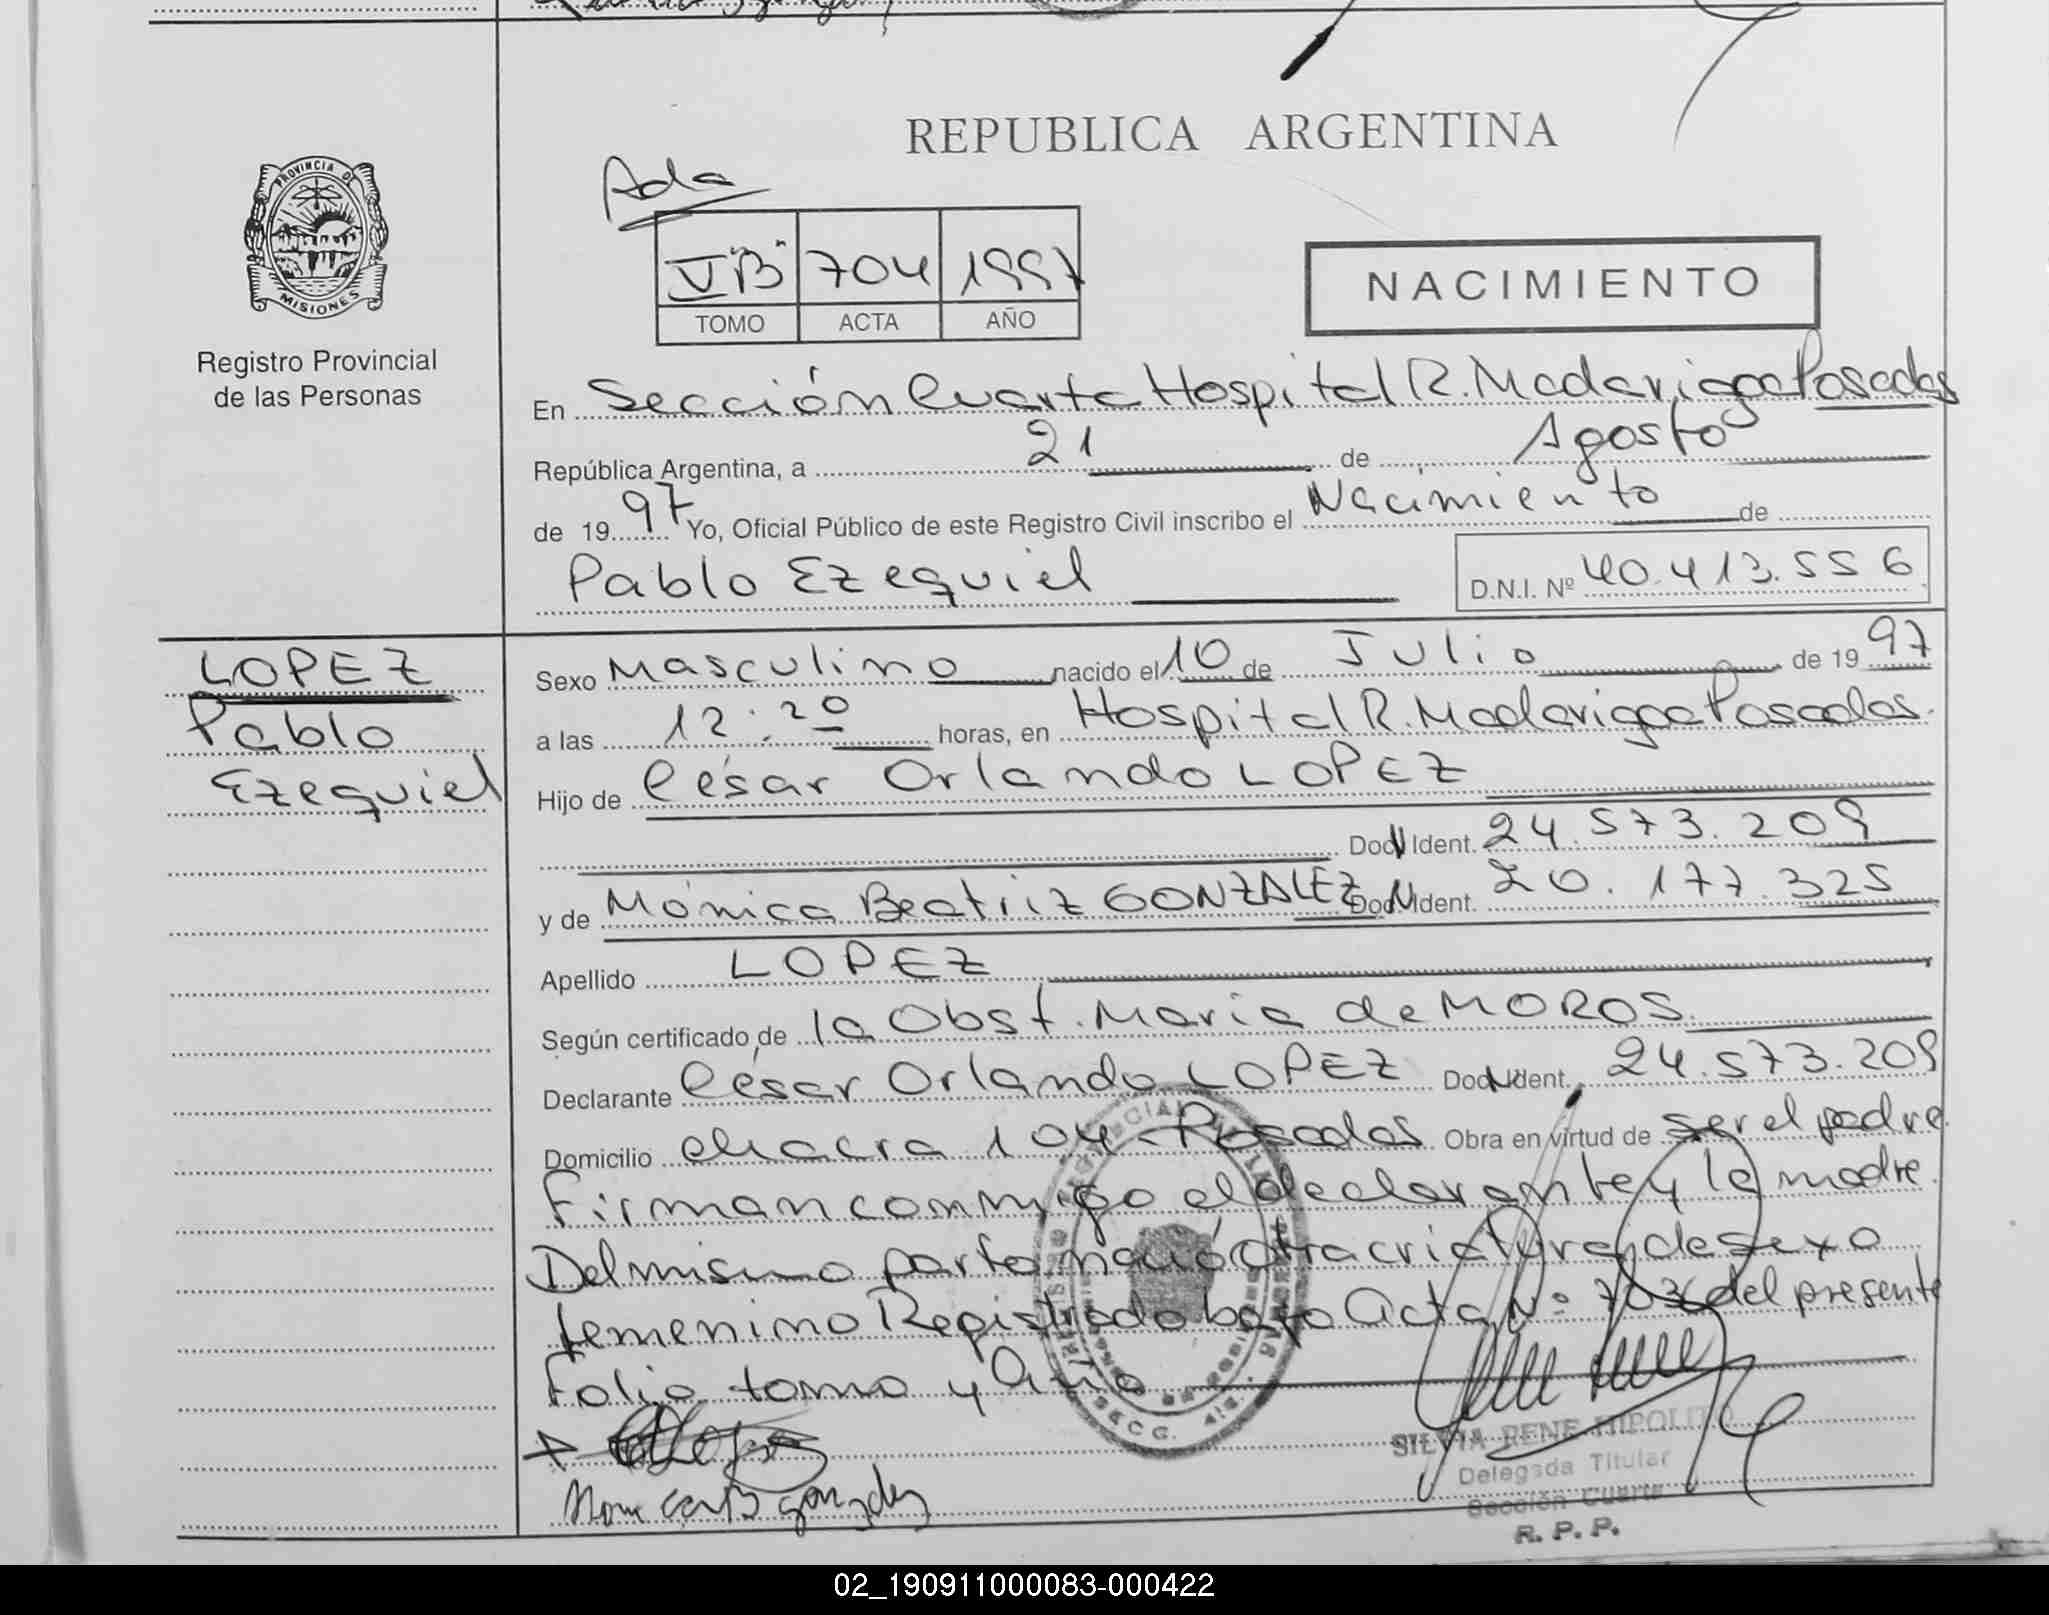 REPUBLICA ARGENTINA
Ada
V "B" 704 1997
TOMO ACTA AÑO
NACIMIENTO
PROVINCIA DE
MISIONES
Registro Provincial
de las Personas
En Sección Cuarta Hospital R. Madariaga Posadas
República Argentina, a 21 de Agosto
de 19 97 Yo, Oficial Público de este Registro Civil inscribo el Nacimiento de
Pablo Ezequiel D.N.I. Nº 40.413.556
LOPEZ
Pablo
Ezequiel
Sexo Masculino nacido el 10 de Julio de 19 97
a las 12:20 horas, en Hospital R. Madariaga Posadas.
Hijo de César Orlando LOPEZ
Doc N Ident. 24.573.209
y de Mónica Beatriz GONZALEZ Doc N Ident. 20.177.325
Apellido LOPEZ
Según certificado de la Obst. Maria de MOROS.
Declarante César Orlando LOPEZ Doc N Ident. 24.573.209
Domicilio chacra 104 - Posadas Obra en virtud de ser el padre
Firman conmigo el declarante y la madre.
Del mismo parto nació otra criatura de sexo
femenino Registrado bajo Acta Nº 703 del presente
Folio tomo y Año
SILVIA RENE HIPOLITO
Delegada Titular
Sección Cuarta
R. P. P.
02_190911000083-000422